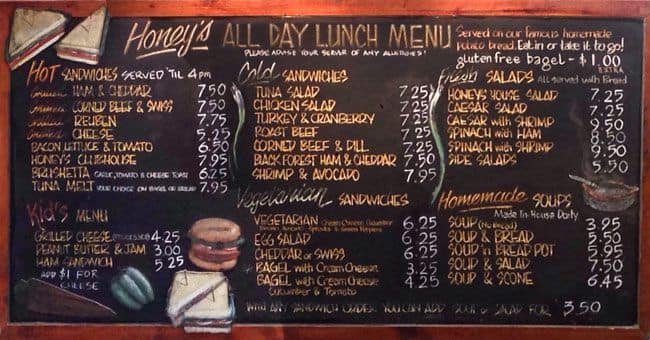 Honey's ALL DAY LUNCH MENU
PLEASE ADVISE YOUR SERVER OF ANY ALLERGIES!
Served on our famous homemade
potato bread. Eat in or take it to go!
gluten free bagel - $1.00
EXTRA
HOT SANDWICHES SERVED 'TIL 4pm
HAM & CHEDDAR 7.50
CORNED BEEF & SWISS 7.50
Grilled REUBEN 7.75
Grilled CHEESE 5.25
BACON, LETTUCE & TOMATO 6.50
HONEY'S CLUBHOUSE 7.95
BRUSHETTA GARLIC, TOMATO & CHEESE TOAST 6.25
TUNA MELT YOUR CHOICE ON BAGEL OR BREAD 7.95
Kid's MENU
GRILLED CHEESE 4.25
PEANUT BUTTER & JAM 3.00
HAM SANDWICH 5.25
ADD $1 FOR
CHEESE
Cold SANDWICHES
TUNA SALAD 7.25
CHICKEN SALAD 7.25
TURKEY & CRANBERRY 7.25
ROAST BEEF 7.25
CORNED BEEF & DILL 7.25
BLACK FOREST HAM & CHEDDAR 7.50
SHRIMP & AVOCADO 7.95
Vegetarian SANDWICHES
VEGETARIAN Cream Cheese, Cucumber 6.25
Tomato, Avocado, Sprouts & Green Peppers
EGG SALAD 6.25
CHEDDAR OR SWISS 6.25
BAGEL with Cream Cheese 3.25
BAGEL with Cream Cheese 4.25
Cucumber & Tomato
WITH ANY SANDWICH ORDER YOU CAN ADD SOUP OR SALAD FOR 3.50
Fresh SALADS ALL served with Bread
HONEY'S HOUSE SALAD 7.25
CAESAR SALAD 7.25
CAESAR with SHRIMP 9.50
SPINACH with HAM 8.50
SPINACH with SHRIMP 9.50
SIDE SALADS 5.50
Homemade SOUPS
Made In House Daily
SOUP (No Bread) 3.95
SOUP & BREAD 5.50
SOUP in BREAD POT 5.95
SOUP & SALAD 7.50
SOUP & SCONE 6.45